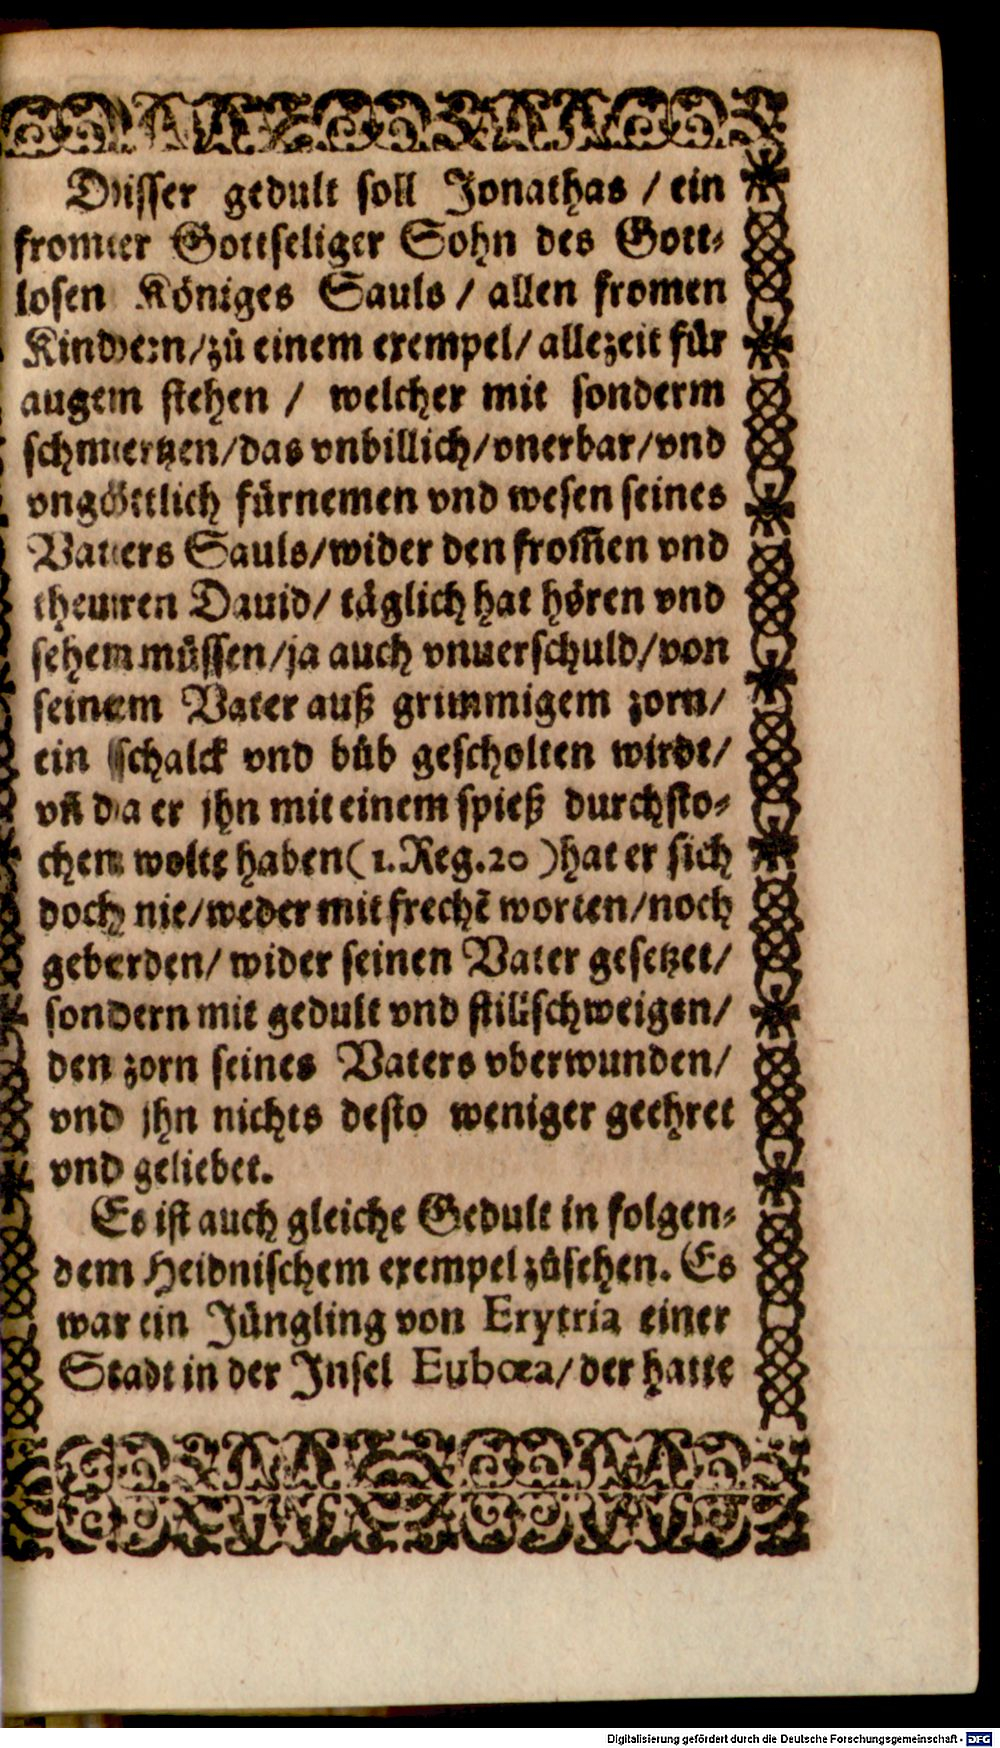 Disser gedult soll Jonathas / ein
fromer Gottseliger Sohn des Gott⸗
losen Königes Sauls / allen fromen
Kindern / zů einem exempel / allezeit für
augen stehen / welcher mit sonderm
schmertzen / das vnbillich / vnerbar / vnd
vngöttlich fürnemen vnd wesen seines
Vatters Sauls / wider den from̃en vnd
thewren Dauid / täglich hat hören vnd
sehem müssen / ja auch vnuerschuld / von
seinem Vater auß grimmigem zorn /
ein schalck vnd bůb gescholten wirdt /
vñ da er jhn mit einem spieß durchsto⸗
chen wolte haben ( 1. Reg. 20 ) hat er sich
doch nie / weder mit frechẽ worten / noch
geberden / wider seinen Vater gesetzet /
sondern mit gedult vnd stillschweigen /
den zorn seines Vaters vberwunden /
vnd jhn nichts desto weniger geehret
vnd geliebet.
Es ist auch gleiche Gedult in folgen⸗
dem Heidnischem exempel zůsehen. Es
war ein Jüngling von Erytria einer
Stadt in der Insel Euboea / der hatte
Digitalisierung gefördert durch die Deutsche Forschungsgemeinschaft - DFG